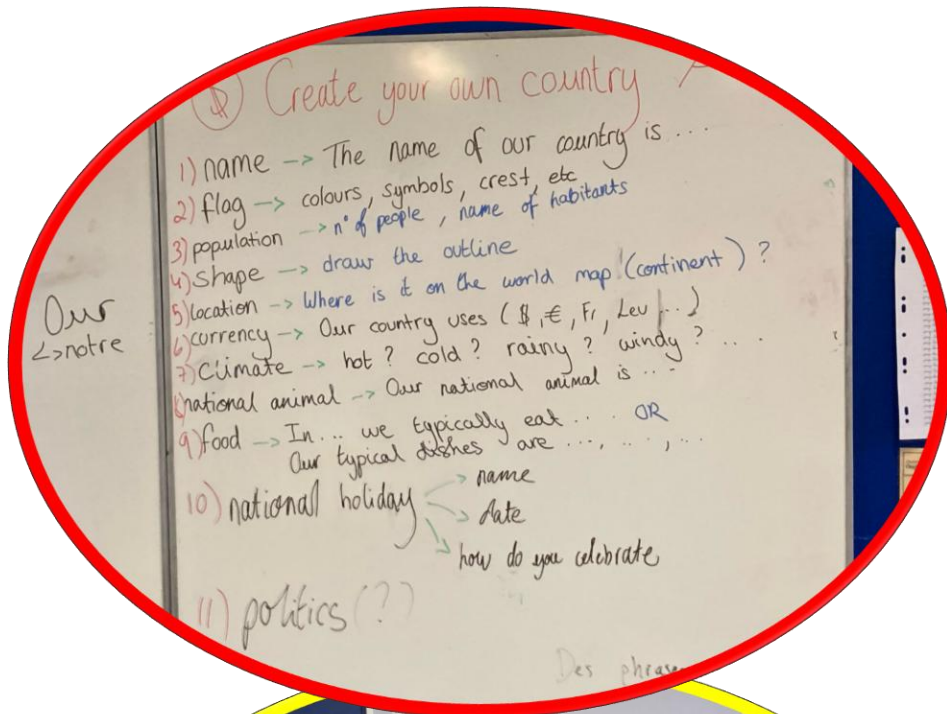 Create your own country
1) name -> The name of our country is ...
2) flag -> colours, symbols, crest, etc
3) population -> n° of people, name of habitants
4) shape -> draw the outline
5) location -> Where is it on the world map (continent) ?
6) currency -> Our country uses ($, €, Fr, Leu, ...)
7) Climate -> hot ? cold ? rainy ? windy ? ...
8) national animal -> Our national animal is ...
9) food -> In ... we typically eat ... OR
Our typical dishes are ..., ..., ...
10) national holiday -> name
-> date
-> how do you celebrate
11) politics (?)
Our
↳ notre
Des phrase